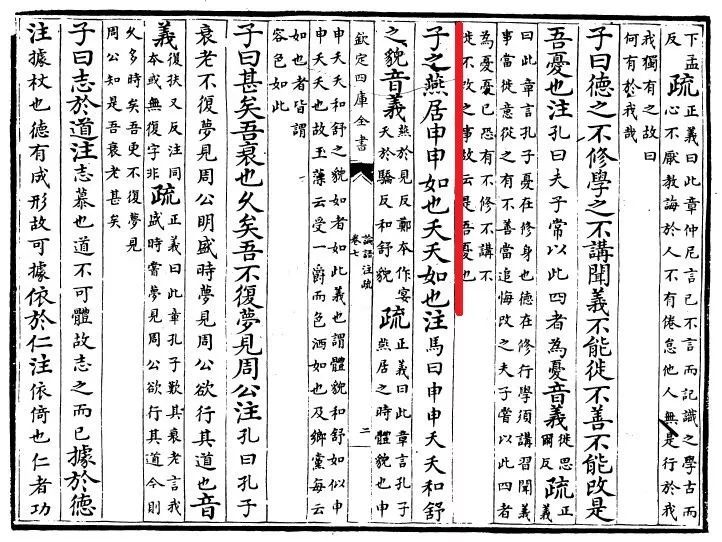 下孟
反
疏
正義曰此章仲尼言己不言而記識之學古而
心不厭教誨於人不有倦怠他人無是行於我
我獨有之故曰
何有於我哉
子曰德之不修學之不講聞義不能徙不善不能改是
吾憂也注孔曰夫子常以此四者為憂音義
徙思
爾反
疏
正
義
曰此章言孔子憂在修身也德在修行學須講習聞義
事當徙意從之有不善當追悔改之夫子嘗以此四者
為憂憂己恐有不修不講不
徙不改之事故云是吾憂也
子之燕居申申如也夭夭如也注馬曰申申夭夭和舒
之貌音義
燕於見反鄭本作宴
夭於驕反和舒貌
疏
正義曰此章言孔子
燕居之時體貌也申
欽定四庫全書
論語注疏
卷七
二
申夭夭和舒之貌如者如此義也謂體貌和舒如似申
申夭夭也故玉藻云受一爵而色洒如也及鄉黨每云
如也者皆謂
容色如此
子曰甚矣吾衰也久矣吾不復夢見周公注孔曰孔子
衰老不復夢見周公明盛時夢見周公欲行其道也音
義
復扶又反注同
本或無復字非
疏
正義曰此章孔子歎其衰老言我
盛時嘗夢見周公欲行其道今則
久多時矣吾更不復夢見
周公知是吾衰老甚矣
子曰志於道注志慕也道不可體故志之而已據於德
注據杖也德有成形故可據依於仁注依倚也仁者功